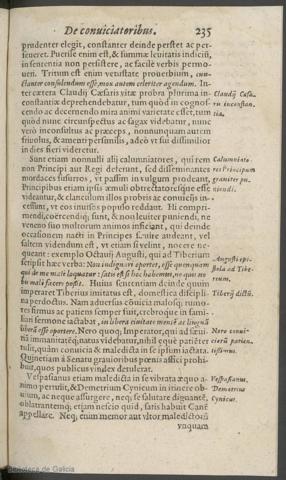 De conuiciatoribus. 235
prudenter elegit, constanter deinde perstet ac per-
seueret. Puerile enim est, & summæ leuitatis indiciũ,
in sententia non persistere, ac facilè verbis permo-
ueri. Tritum est enim vetustate prouerbium, cun-
ctanter consulendum esse, mox autem celeriter agendum. In-
ter cætera Claudij Cæsaris vitæ probra plurima in-
constantiæ deprehendebatur, tum quòd in cognos-
cendo ac decernendo mira animi varietate esset, tum
quòd nunc circunspectus ac sagax videbatur, nunc
verò inconsultus ac præceps, nonnunquam autem
friuolus, & amenti persimilis, adeò vt sui dissimilior
in dies fieri videretur.
Claudij Cæsa-
ris inconstan-
tia.
Sunt etiam nonnulli alij calumniatores, qui rem
non Principi aut Regi deferunt, sed disseminantes
mordaces susurros, vt passim in vulgum prodeant,
Principibus etiam ipsis æmuli obtrectatoresque esse
videntur, & clanculum illos probris ac conuicijs in-
cessunt, vt eos inuisos populo reddant. Hi compri-
mendi, coërcendiq; sunt, & non leuiter puniendi, ne
veneno suo multorum animos inficiant, qui deinde
occasionem nacti in Principes sæuire audeant, vel
saltem videndum est, vt etiam si velint, nocere ne-
queant: exemplo Octauij Augusti, qui ad Tiberium
scripsit hæc verba: Non indignum oportet, esse quemquam
qui de me malè loquatur: satis est si hoc habemus, ne quis no-
bis malè facere possit. Huius sententiam deinde quum
imperaret Tiberius imitatus est, domestica discipli-
na perdoctus. Nam aduersus conuicia malosq; rumo-
res firmus ac patiens semper fuit, crebroque in fami-
liari sermone iactabat, in libera ciuitate mentẽ ac linguã
liberã esse oportere. Nero quoq; Imperator, qui ad sæui-
tiã immanitatẽq; natus videbatur, nihil equè patiẽter
tulit, quàm conuicia & maledicta in se ipsum iactata.
Quinetiam à Senatu grauioribus pœnis affici prohi-
buit, quos publicus vindex detulerat.
Calumniato-
res Principum
grauiter pu-
niendi.
Augusti epi-
stola ad Tibe-
rium.
Tiberij dictũ.
Nero conui-
ciorũ patien-
tissimus.
Vespasianus etiam maledicta in se vibrata æquo a-
nimo pertulit, & Demetrium Cynicum in itinere ob-
uium, ac neque assurgere, neq; se salutare dignantẽ,
oblatrantemq; etiam nescio quid, satis habuit Canẽ
appellare. Neq; enim memor aut vltor maledictorũ
vnquam
Vespasianus.
Demetrius
Cynicus.
Biblioteca de Galicia